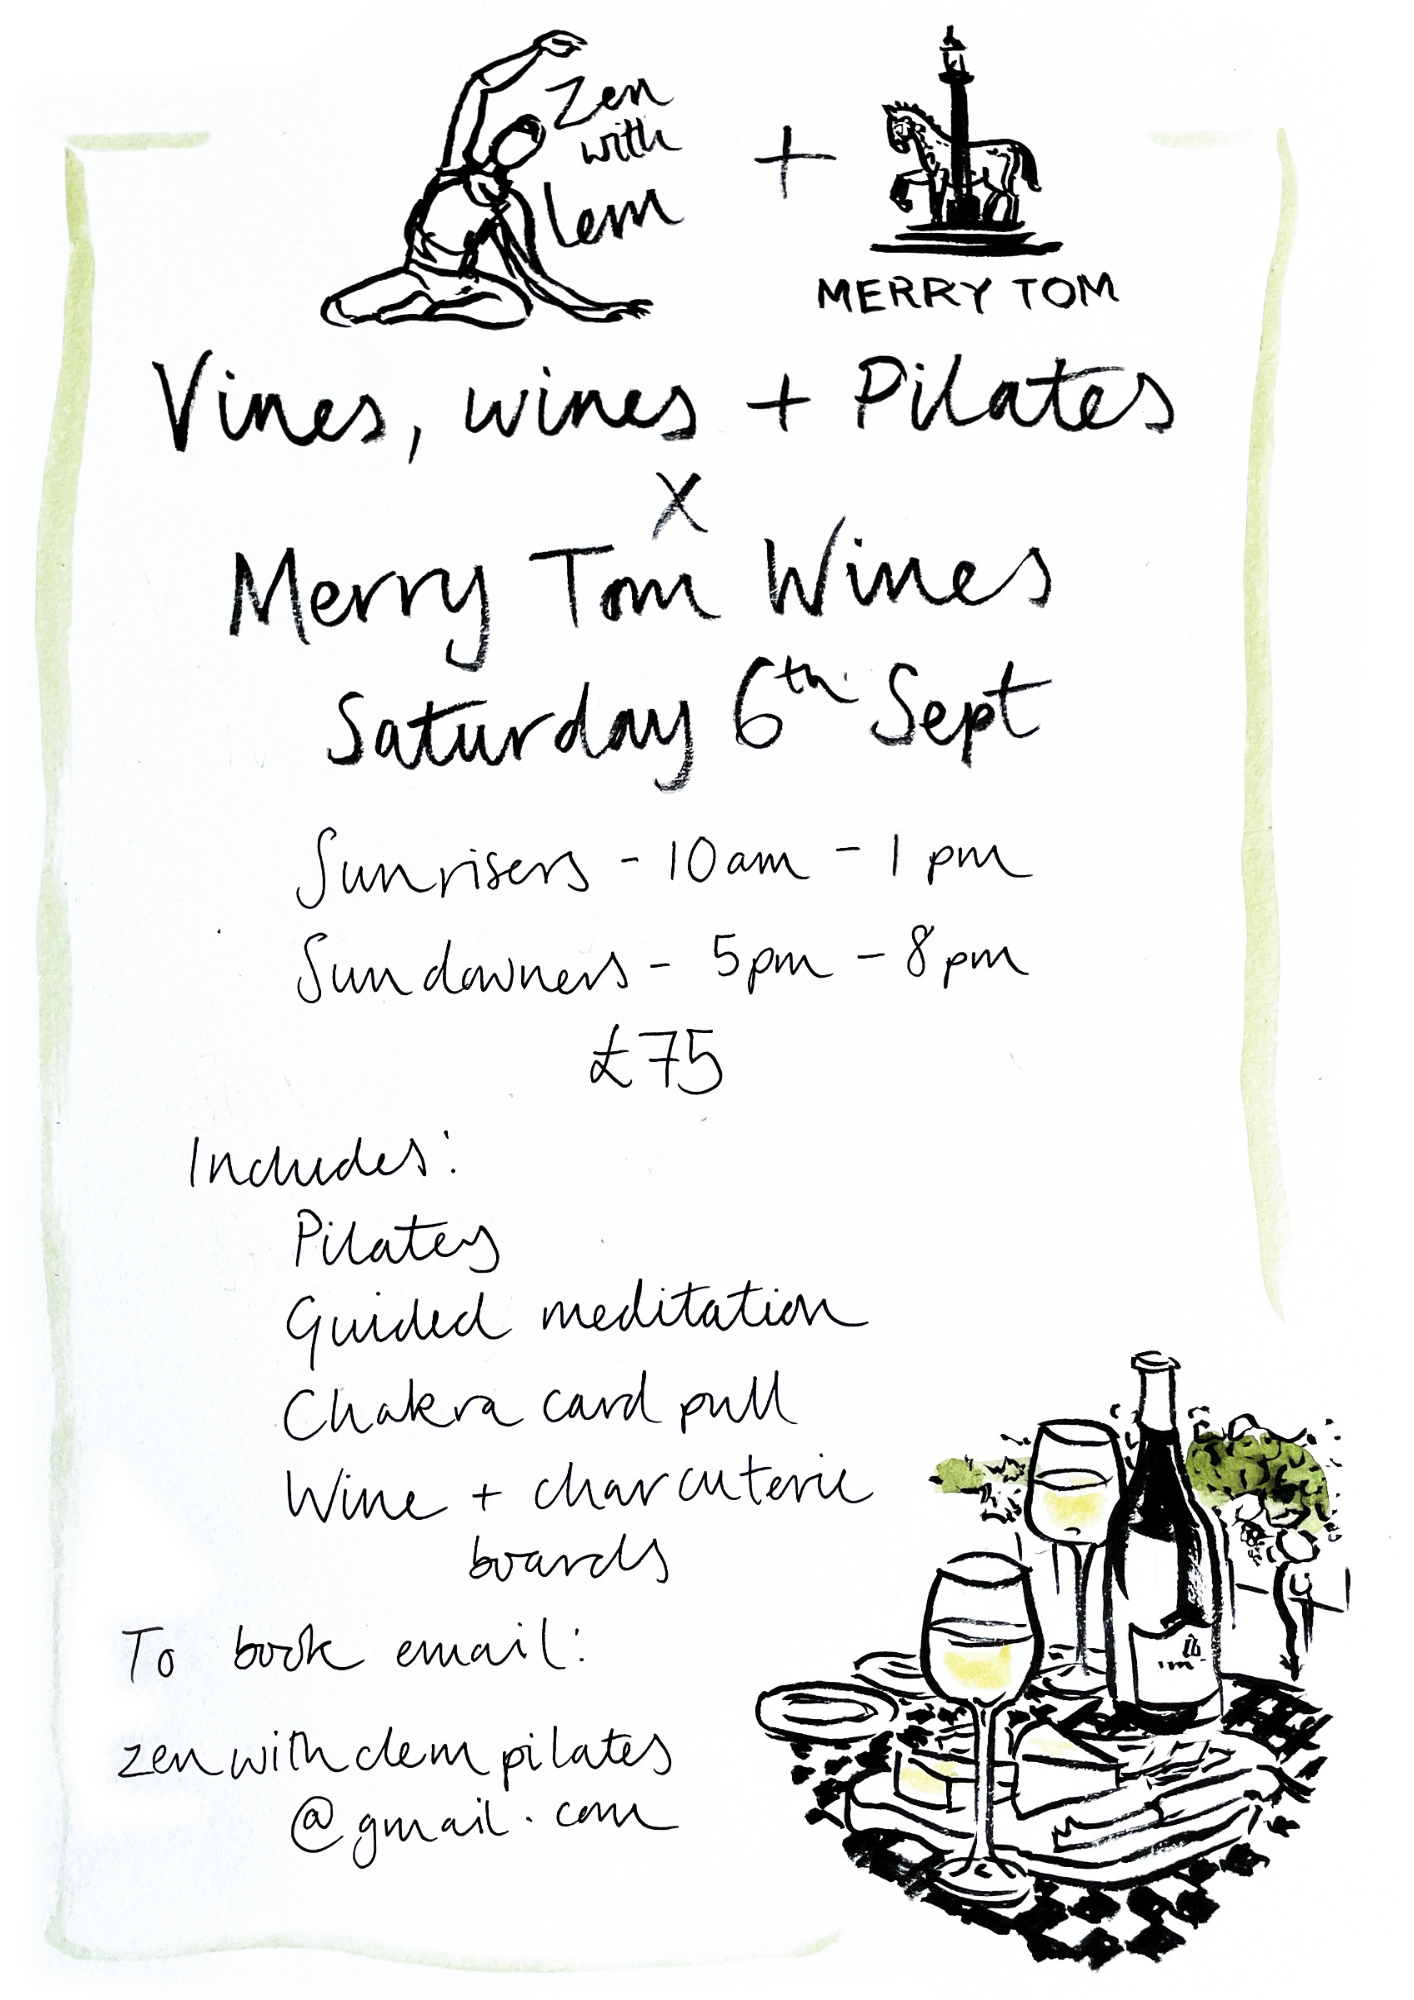 Zen
with
lem
+
MERRY TOM
Vines, wines + Pilates
X
Merry Tom Wines
Saturday 6th Sept
Sunrisers - 10am - 1pm
Sundowners - 5pm - 8pm
£75
Includes:
Pilates
Guided meditation
Chakra card pull
Wine + charcuterie
boards
To book email:
zenwithclempilates
@gmail.com